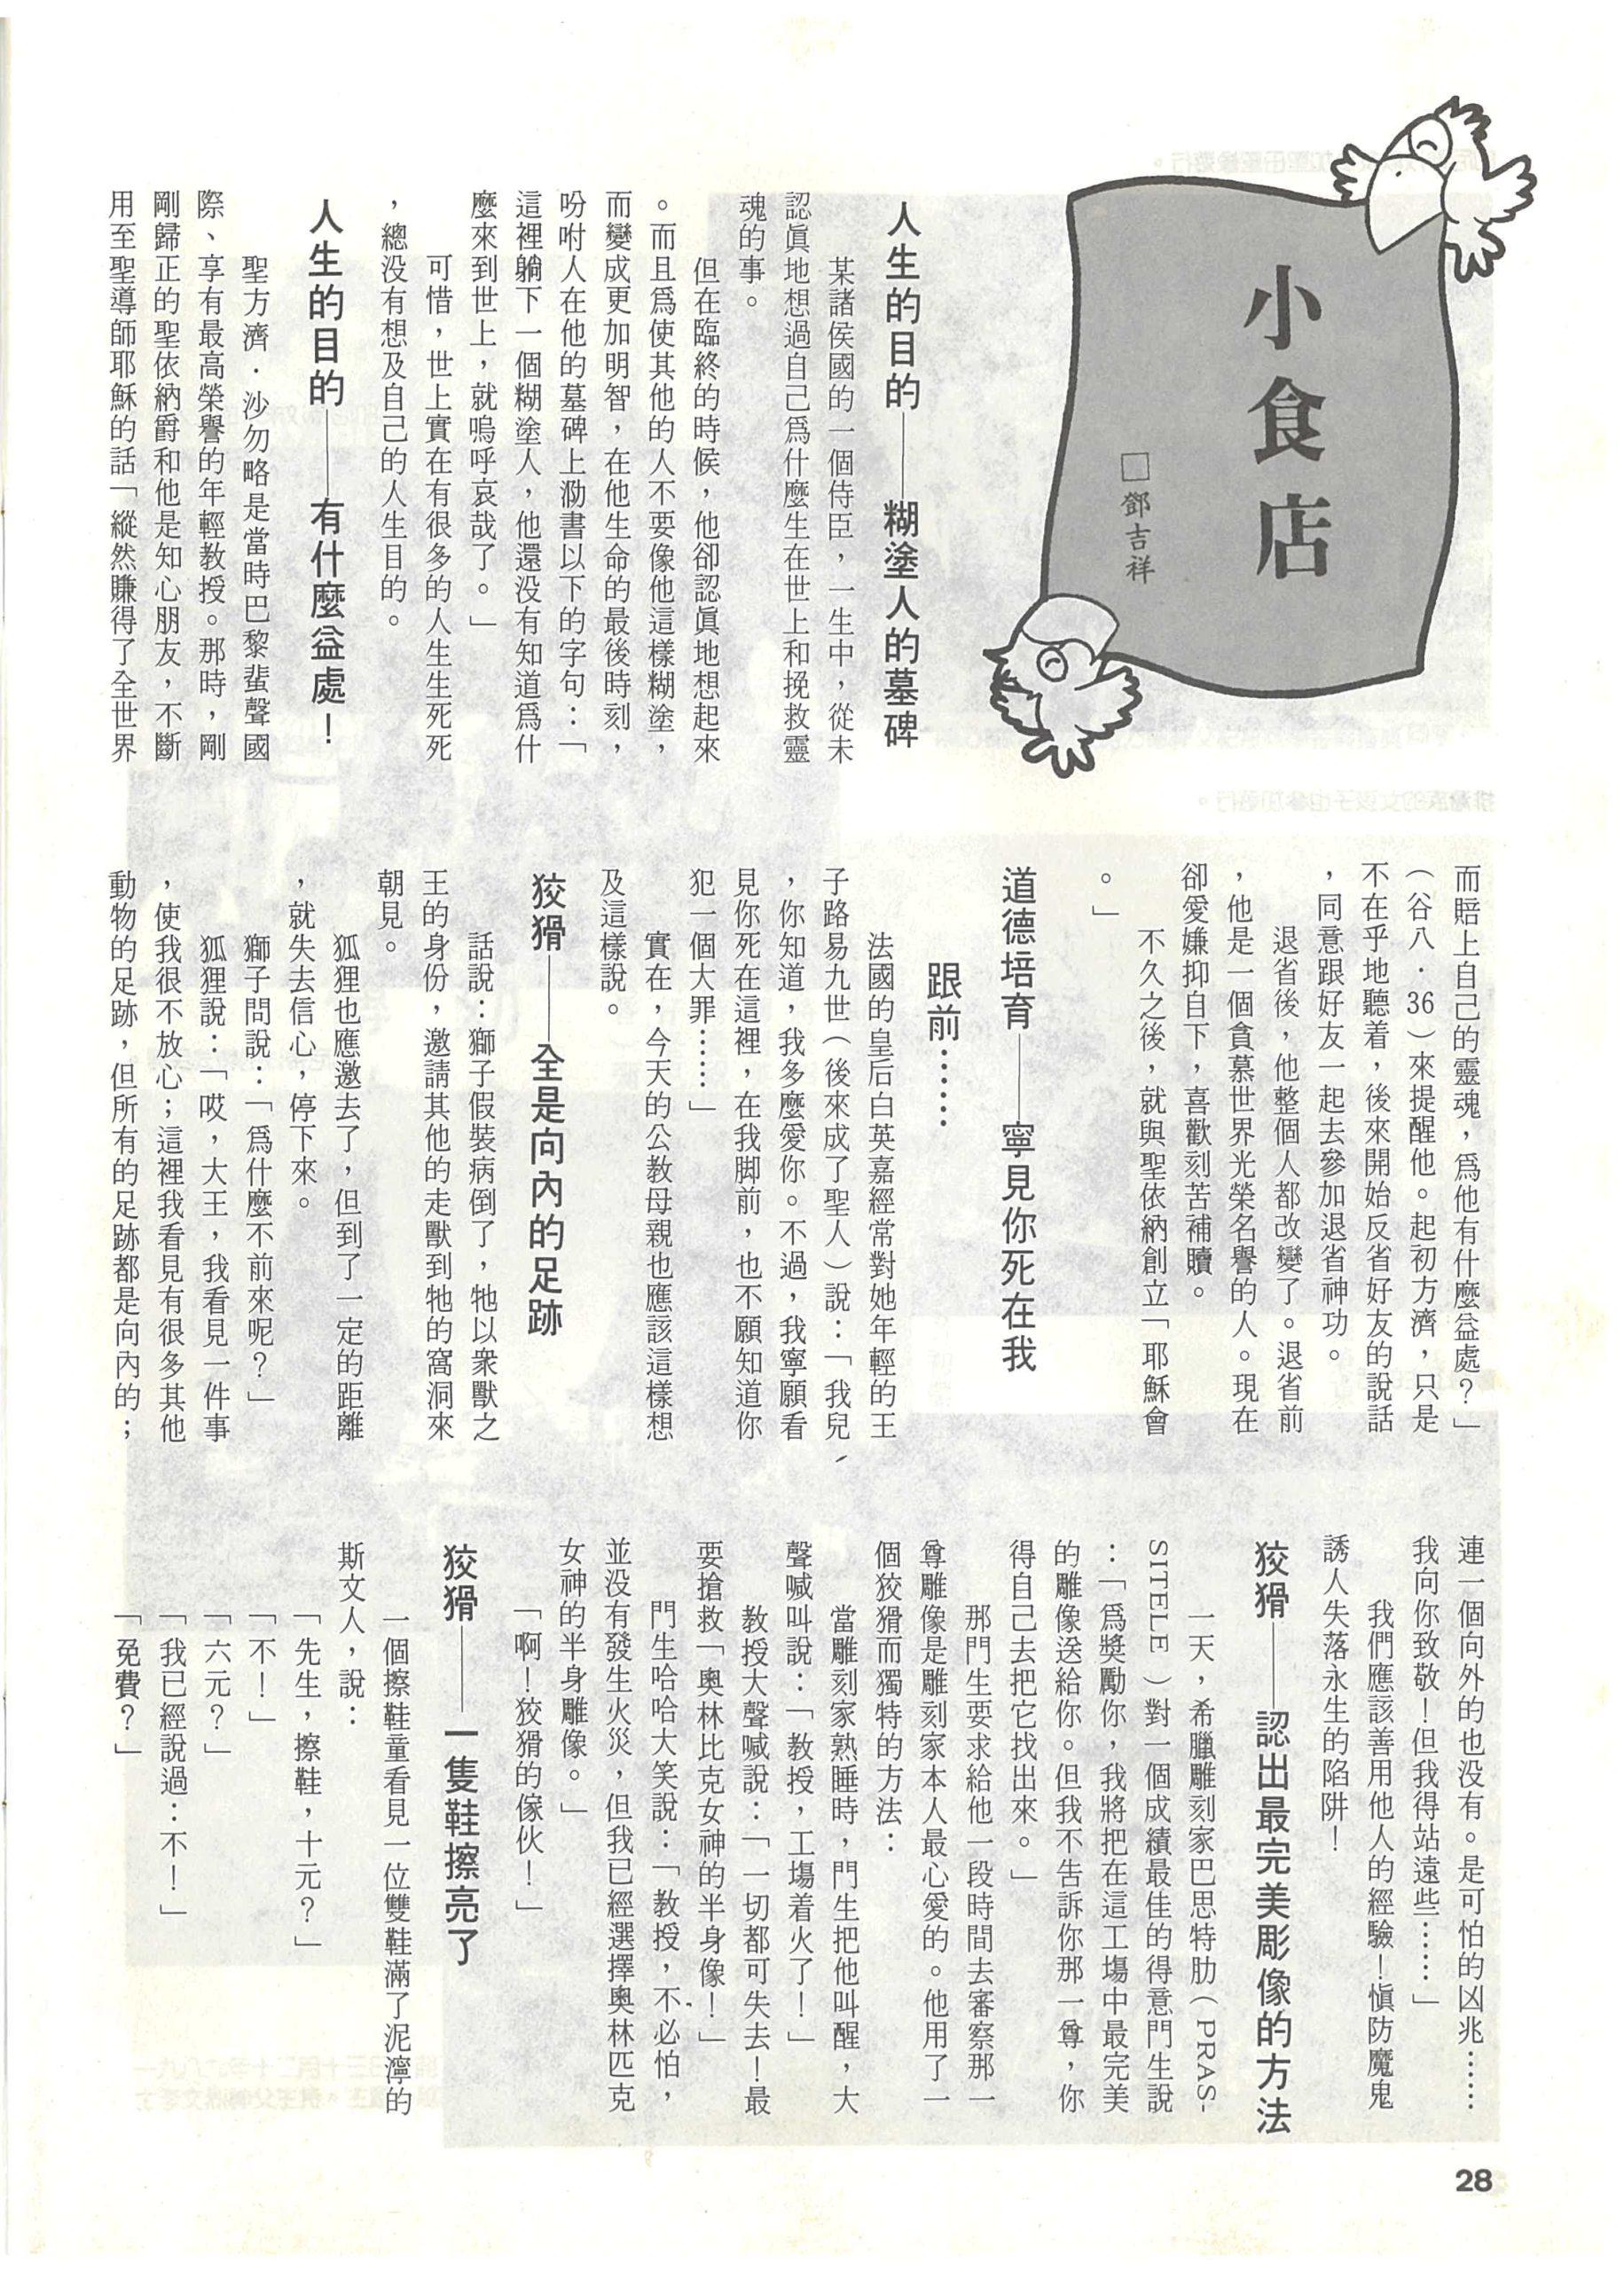 小食店
□鄧吉祥
人生的目的——糊塗人的墓碑
某諸侯國的一個侍臣，一生中，從未
認眞地想過自己爲什麼生在世上和挽救靈
魂的事。
但在臨終的時候，他卻認眞地想起來
。而且爲使其他的人不要像他這樣糊塗，
而變成更加明智，在他生命的最後時刻，
吩咐人在他的墓碑上泐書以下的字句：「
這裡躺下一個糊塗人，他還没有知道爲什
麼來到世上，就嗚呼哀哉了。」
可惜，世上實在有很多的人生生死死
，總没有想及自己的人生目的。
人生的目的——有什麼益處！
聖方濟．沙勿略是當時巴黎蜚聲國
際、享有最高榮譽的年輕教授。那時，剛
剛歸正的聖依納爵和他是知心朋友，不斷
用至聖導師耶穌的話「縱然賺得了全世界
而賠上自己的靈魂，爲他有什麼益處？」
（谷八．36）來提醒他。起初方濟，只是
不在乎地聽着，後來開始反省好友的說話
，同意跟好友一起去參加退省神功。
退省後，他整個人都改變了。退省前
，他是一個貪慕世界光榮名譽的人。現在
卻愛嫌抑自下，喜歡刻苦補贖。
不久之後，就與聖依納創立「耶穌會
。」
道德培育——寧見你死在我
跟前……
法國的皇后白英嘉經常對她年輕的王
子路易九世（後來成了聖人）說：「我兒
，你知道，我多麼愛你。不過，我寧願看
見你死在這裡，在我脚前，也不願知道你
犯一個大罪……」
實在，今天的公教母親也應該這樣想
及這樣說。
狡猾——全是向內的足跡
話說：獅子假裝病倒了，牠以衆獸之
王的身份，邀請其他的走獸到牠的窩洞來
朝見。
狐狸也應邀去了，但到了一定的距離
，就失去信心，停下來。
獅子問說：「爲什麼不前來呢？」
狐狸說：「哎，大王，我看見一件事
，使我很不放心；這裡我看見有很多其他
動物的足跡，但所有的足跡都是向內的；
連一個向外的也没有。是可怕的凶兆……
我向你致敬！但我得站遠些……」
我們應該善用他人的經驗！愼防魔鬼
誘人失落永生的陷阱！
狡猾——認出最完美彫像的方法
一天，希臘雕刻家巴思特肋（PRAS-
SITELE）對一個成績最佳的得意門生說
：「爲獎勵你，我將把在這工場中最完美
的雕像送給你。但我不吿訴你那一尊，你
得自己去把它找出來。」
那門生要求給他一段時間去審察那一
尊雕像是雕刻家本人最心愛的。他用了一
個狡猾而獨特的方法：
當雕刻家熟睡時，門生把他叫醒，大
聲喊叫說：「教授，工塲着火了！」
教授大聲喊說：「一切都可失去！最
要搶救「奧林比克女神的半身像！」
門生哈哈大笑說：「教授，不必怕，
並没有發生火災，但我已經選擇奧林匹克
女神的半身雕像。」
「啊！狡猾的傢伙！」
狡猾——一隻鞋擦亮了
一個擦鞋童看見一位雙鞋滿了泥濘的
斯文人，說：
「先生，擦鞋，十元？」
「不！」
「六元？」
「我已經說過：不！」
「免費？」
28